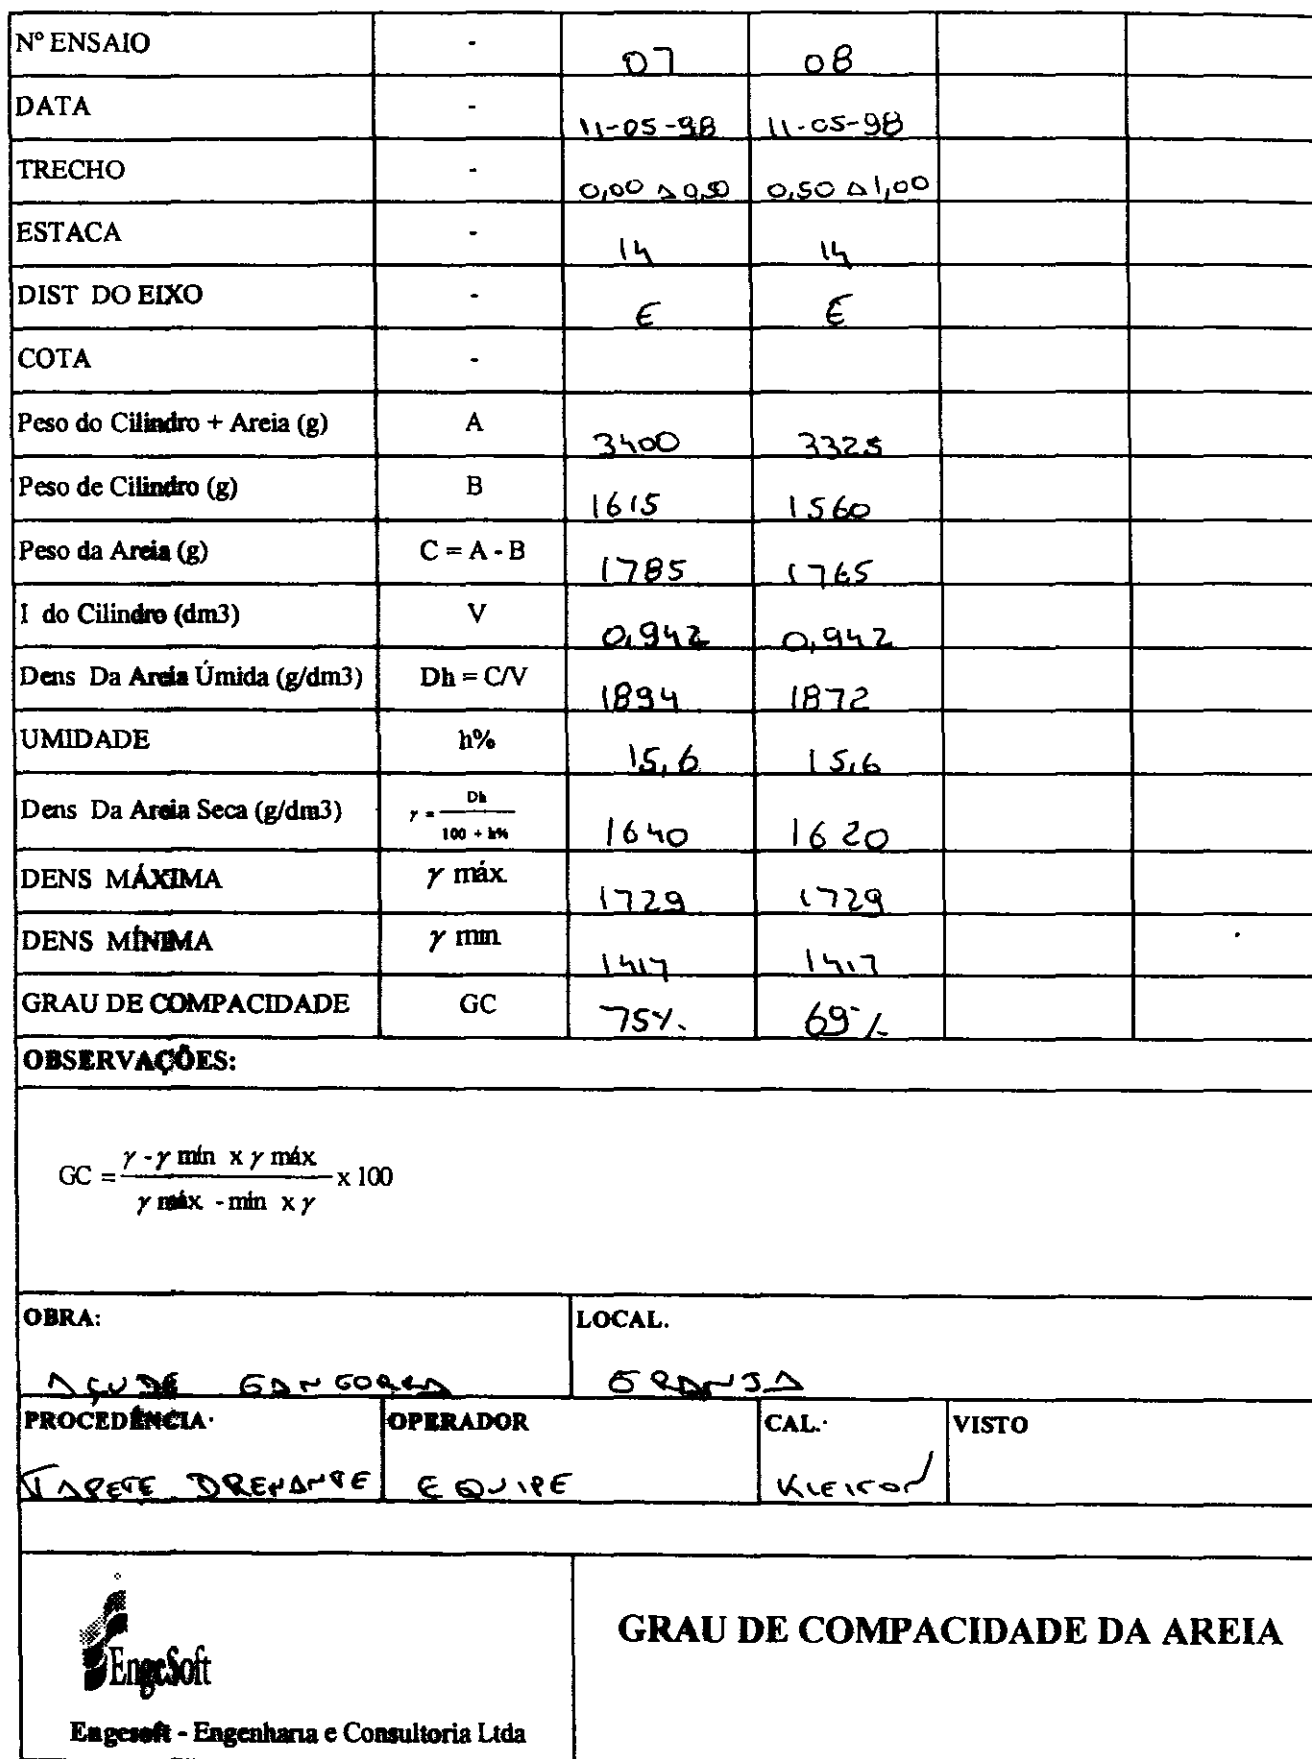 Nº ENSAIO - 07 08
DATA - 11-05-98 11-05-98
TRECHO - 0,00 A 0,50 0,50 A 1,00
ESTACA - 14 14
DIST DO EIXO - E E
COTA -
Peso do Cilindro + Areia (g) A 3400 3325
Peso de Cilindro (g) B 1615 1560
Peso da Areia (g) C = A - B 1785 1765
I do Cilindro (dm3) V 0,942 0,942
Dens Da Areia Úmida (g/dm3) Dh = C/V 1894 1872
UMIDADE h% 15,6 15,6
Dens Da Areia Seca (g/dm3) γ = Dh / 100 + h% 1640 1620
DENS MÁXIMA γ máx. 1729 1729
DENS MÍNIMA γ mm 1417 1417
GRAU DE COMPACIDADE GC 75% 69%
OBSERVAÇÕES:
GC = γ - γ mín x γ máx. / γ máx. - mín x γ x 100
OBRA: LOCAL.
AÇUDE GANGORRA GRANJA
PROCEDÊNCIA· OPERADOR CAL.· VISTO
TAPETE DRENANTE EQUIPE Kleison
EngeSoft
GRAU DE COMPACIDADE DA AREIA
Engesoft - Engenharia e Consultoria Ltda